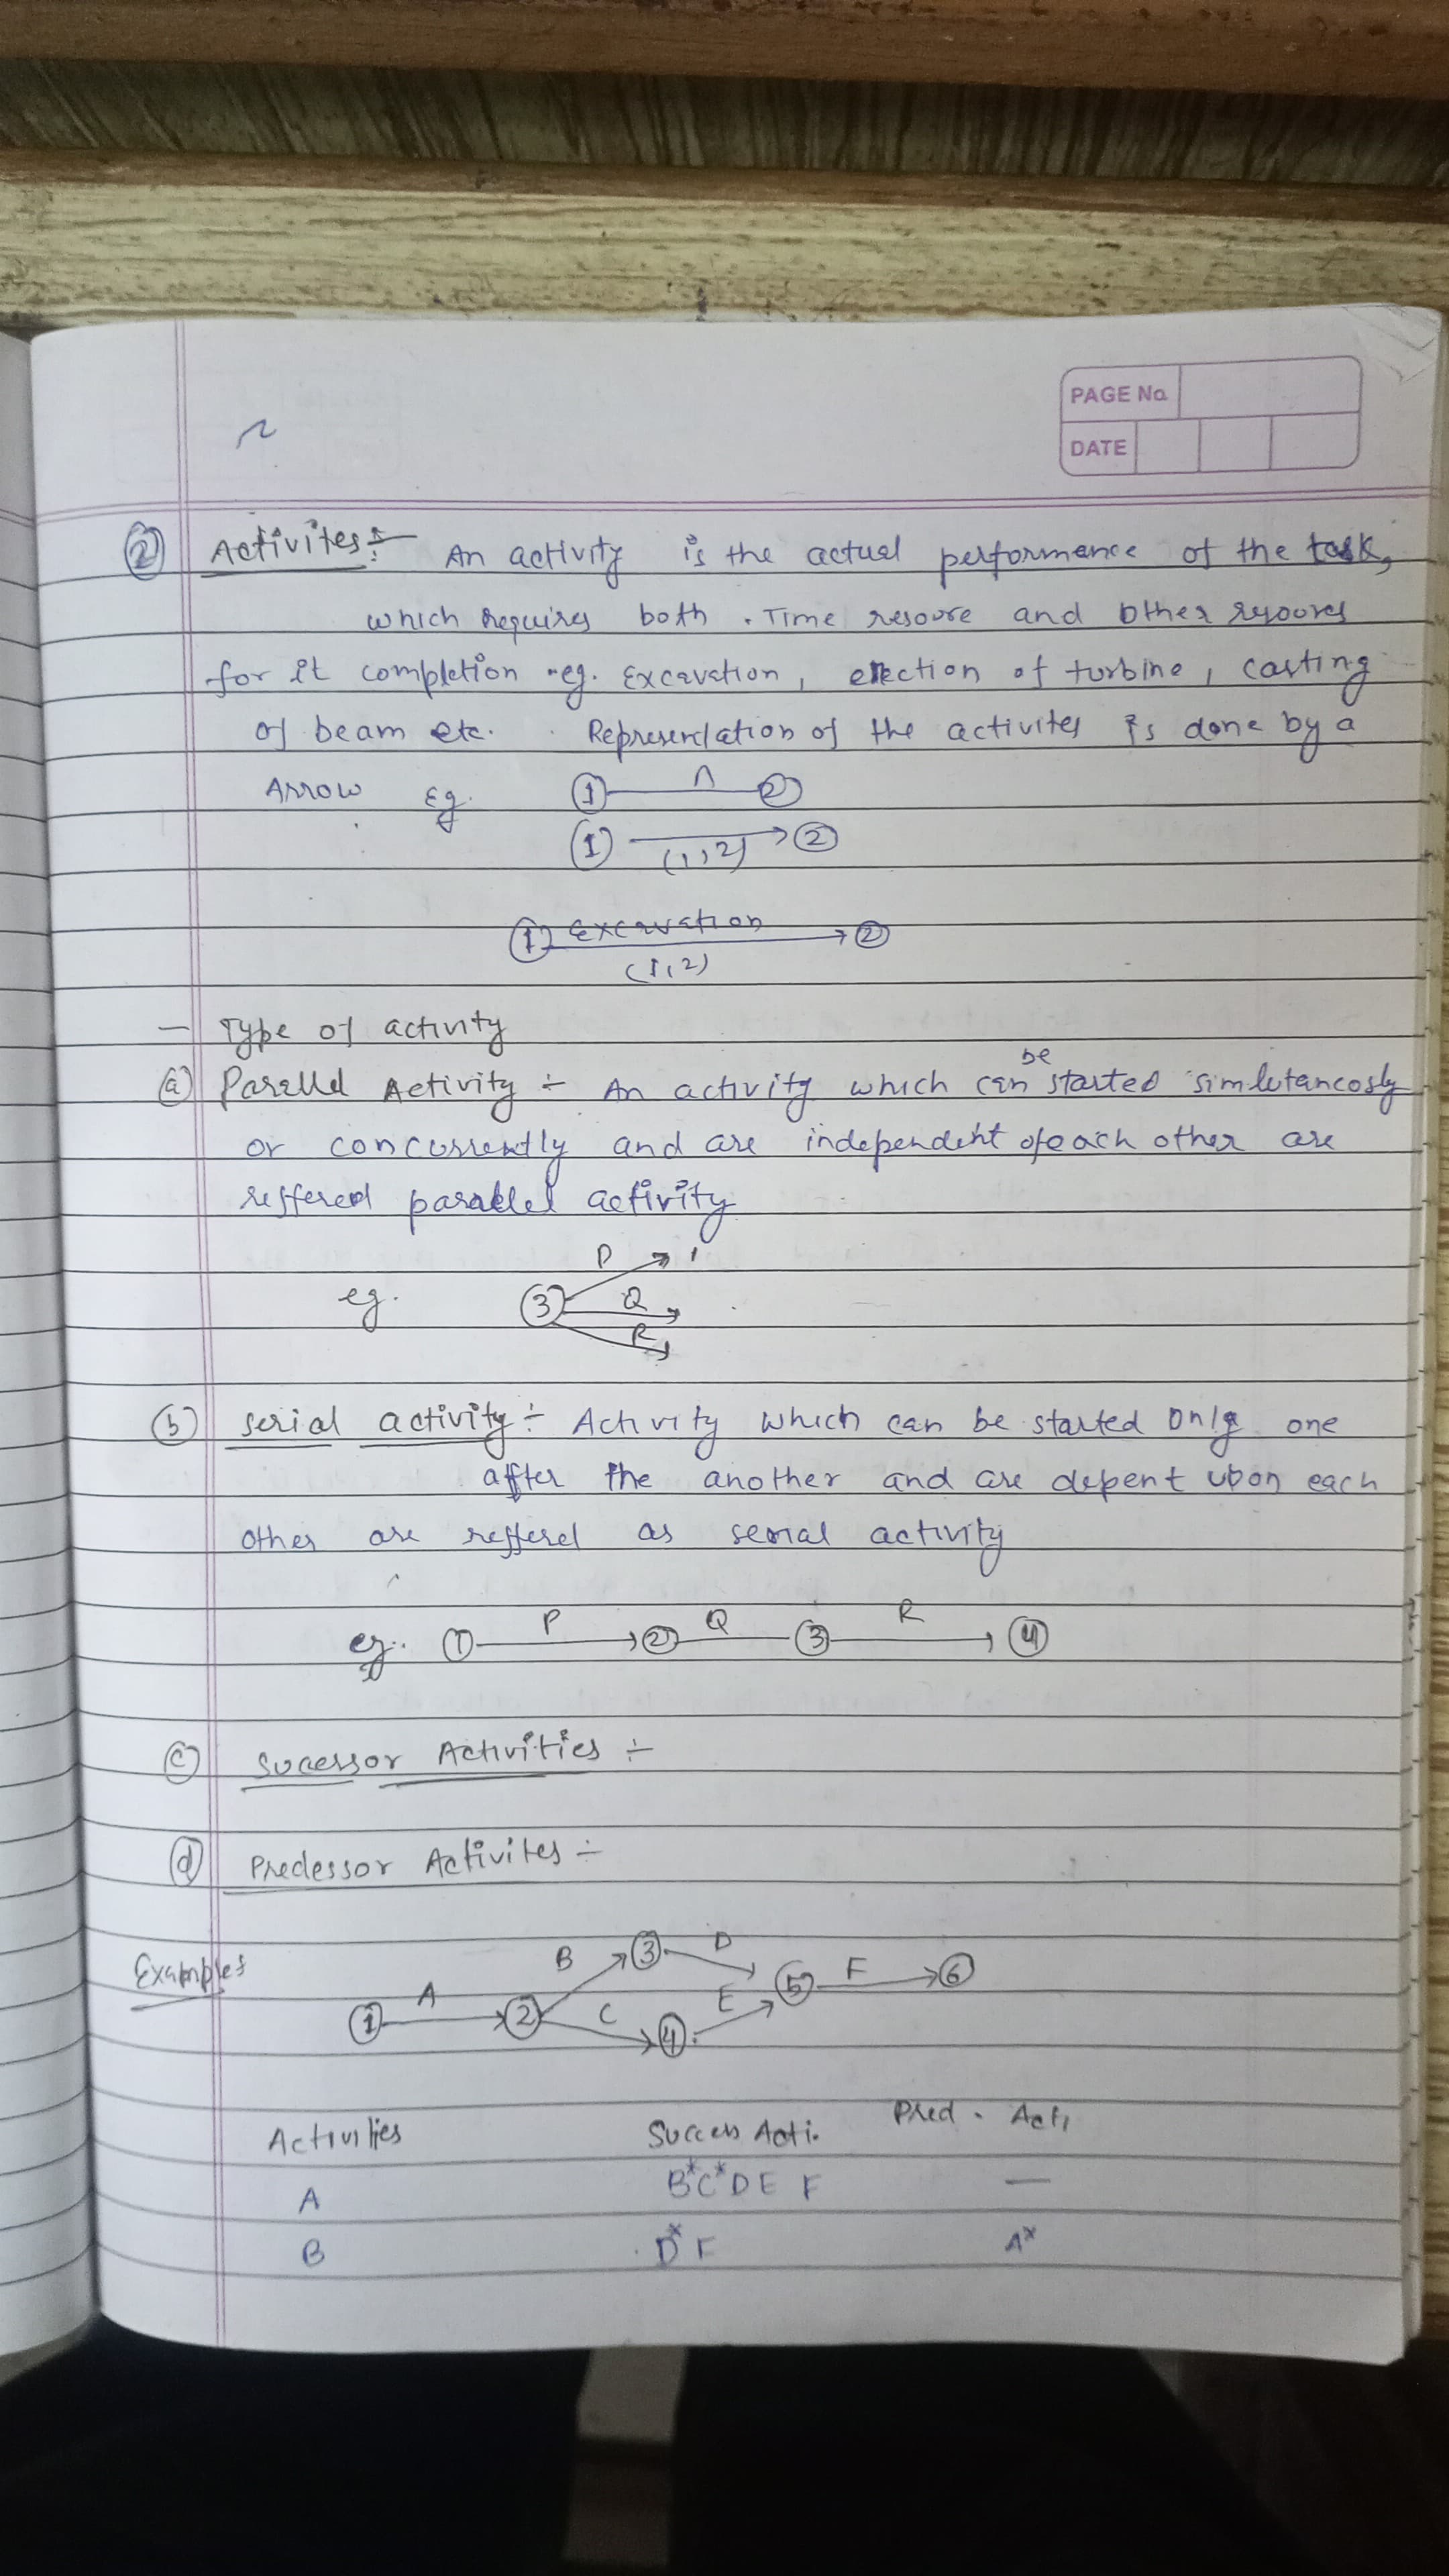 PAGE No.
DATE
② Activites :- An activity is the actual performance of the task,
which requires both . Time resoure and other resoures
for it completion eg. Excavation, erection of turbine, casting
of beam etc. Representation of the activites is done by a
Arrow Eg. ① A ②
① (1,2) ②
① Excavation ②
(1,2)
- Type of activity
be
ⓐ Parallel Activity ÷ An activity which can started simlutancosly
or concurrently and are independent of each other are
reffered parallel activity
P
eg. ③ Q
R
ⓑ serial activity ÷ Activity which can be started only one
after the another and are depent upon each
other are reffered as serial activity
eg. ① P ② Q ③ R ④
ⓒ Sucessor Activities ÷
ⓓ Predessor Activites ÷
Examples
B ③ D
① A ② ⑤ F ⑥
C ④ E
Activities Success Acti. Pred. Acti
A B*C*D E F —
B D* F A*